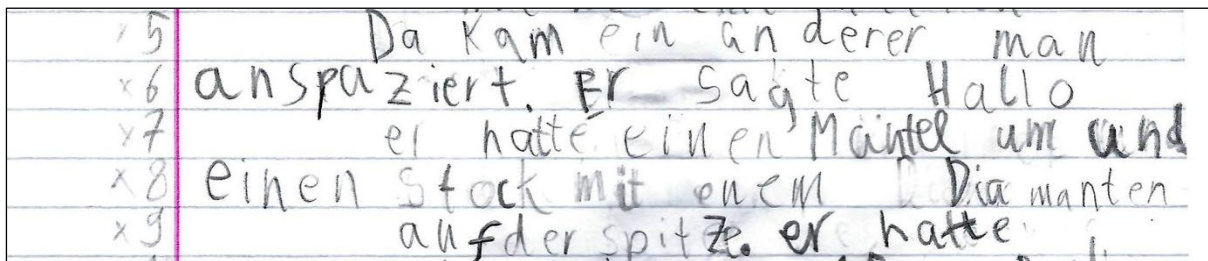 x 5 Da kam ein anderer man
x 6 anspaziert. Er sagte Hallo
x 7 er hatte einen Mantel um und
x 8 einen Stock mit enem Diamanten
x 9 auf der spitze. er hatte